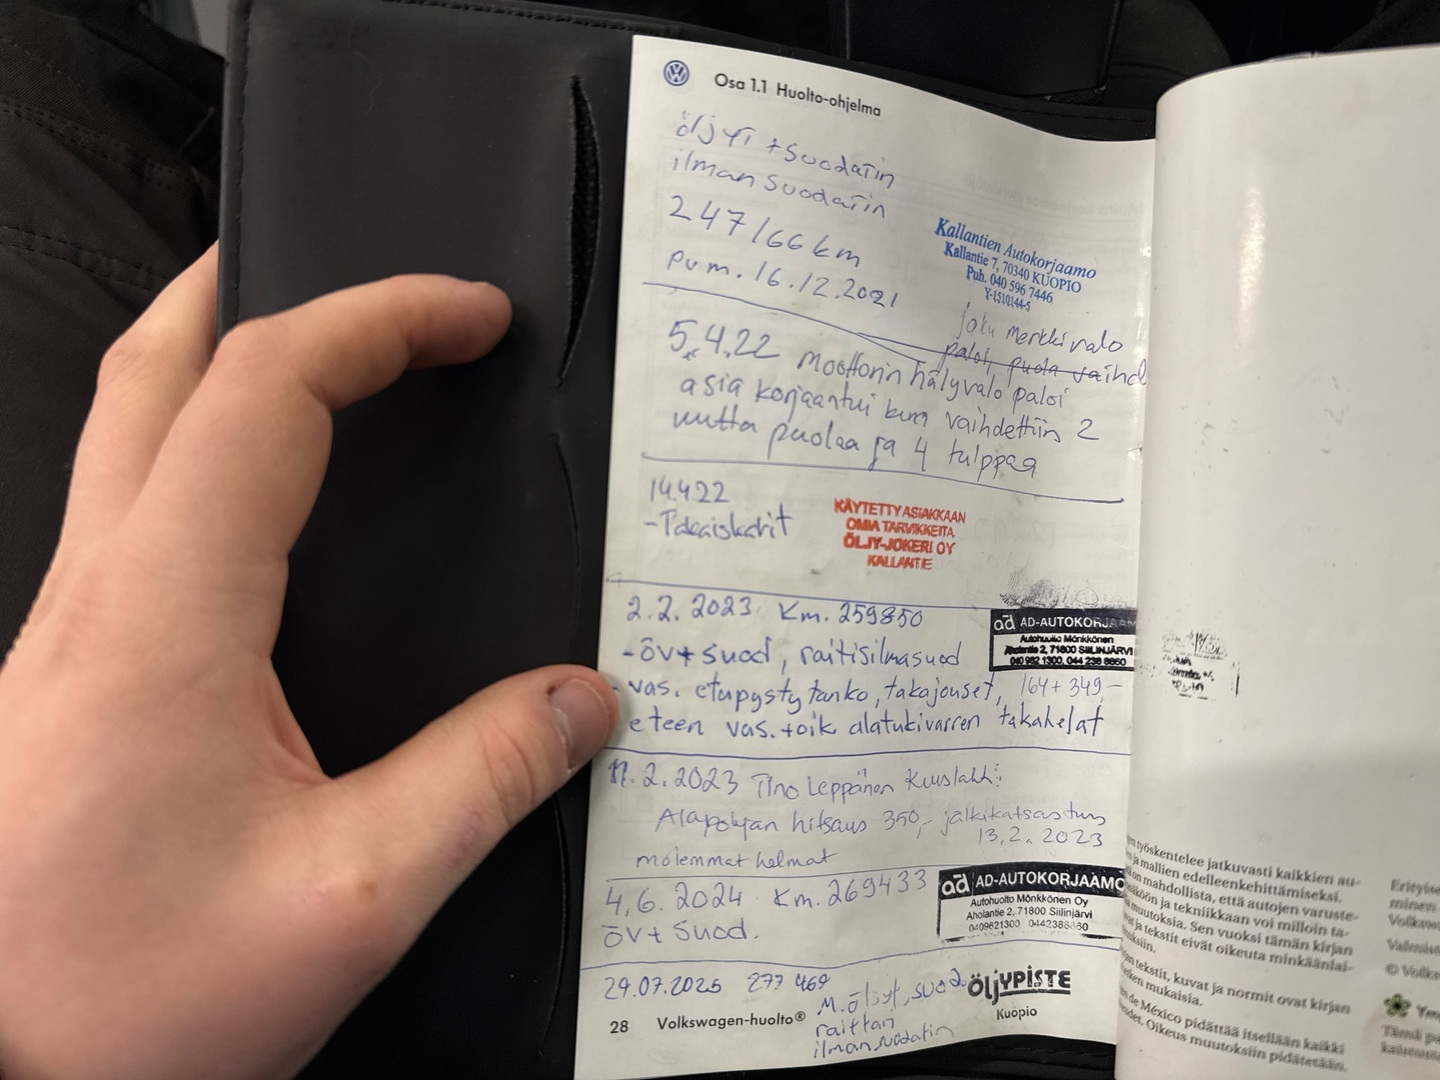 Osa 1.1 Huolto-ohjelma
öljyt + suodatin
ilman suodatin
247166 km
pvm. 16.12.2021
Kallantien Autokorjaamo
Kallantie 7, 70340 KUOPIO
Puh. 040 596 7446
Y-1510144-5
joku merkkivalo
paloi, puola vaihd
5.4.22 moottorin hälyvalo paloi
asia korjaantui kun vaihdettiin 2
uutta puolaa ja 4 tulppaa
14.4.22
-Takaiskarit
KÄYTETTY ASIAKKAAN
OMIA TARVIKKEITA
ÖLJY-JOKERI OY
KALLANTIE
2.2.2023 Km. 259850
-öv+suod, raitisilmasuod
-vas. etupystytanko, takajouset, 164+349,-
eteen vas.+oik alatukivarren takahelat
ad AD-AUTOKORJAAM
Autohuolto Mönkkönen
Aholantie 2, 71800 SIILINJÄRVI
040 962 1300, 044 238 8860
11.2.2023 Tino Leppänen Kuuslahti:
Alapohjan hitsaus 350,- jälkikatsastus
13.2.2023
molemmat helmat
4.6.2024 Km. 269433
öv+ suod.
ad AD-AUTOKORJAAMO
Autohuolto Mönkkönen Oy
Aholantie 2, 71800 Siilinjärvi
0409621300 0442388860
29.07.2025 277 469
M.öljyt, suod.
raittan
ilmansuodatin
ÖLJYPISTE
Kuopio
28 Volkswagen-huolto®
työskentelee jatkuvasti kaikkien au-
ja mallien edelleenkehittämiseksi.
on mahdollista, että autojen varuste-
köön ja tekniikkaan voi milloin ta-
muutoksia. Sen vuoksi tämän kirjan
ja tekstit eivät oikeuta minkäänlai-
tekstit, kuvat ja normit ovat kirjan
mukaisia.
de México pidättää itsellään kaikki
Oikeus muutoksiin pidätetään.
minen
© Volks